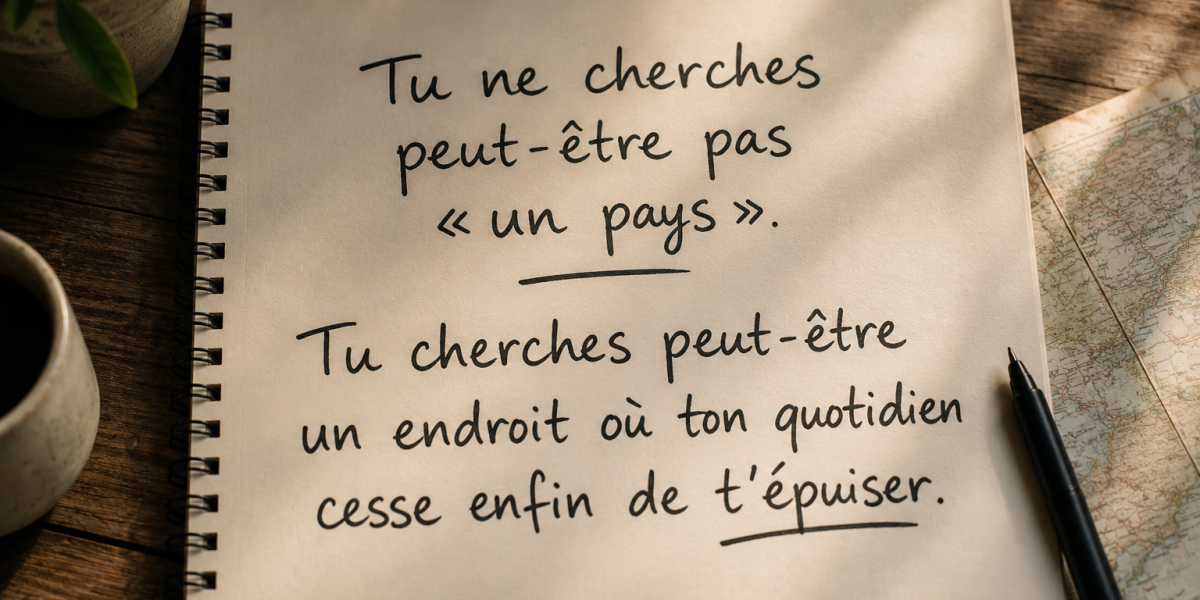 Tu ne cherches
peut-être pas
« un pays ».
Tu cherches peut-être
un endroit où ton quotidien
cesse enfin de t'épuiser.